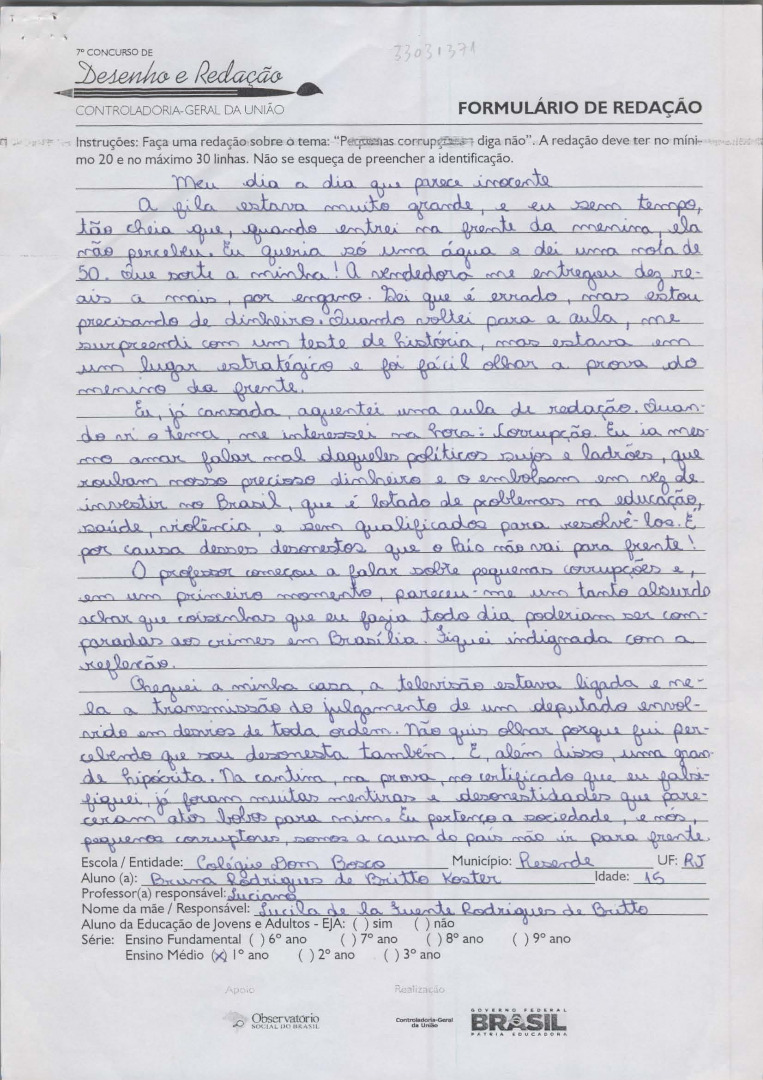 33031371
7º CONCURSO DE
Desenho e Redação
CONTROLADORIA-GERAL DA UNIÃO
FORMULÁRIO DE REDAÇÃO
Instruções: Faça uma redação sobre o tema: “Pequenas corrupções - diga não”. A redação deve ter no míni-
mo 20 e no máximo 30 linhas. Não se esqueça de preencher a identificação.
Meu dia a dia que parece inocente
A fila estava muito grande, e eu sem tempo,
tão cheia que, quando entrei na frente da menina, ela
não percebeu. Eu queria só uma água e dei uma nota de
50. Que sorte a minha! A vendedora me entregou dez re-
ais a mais, por engano. Sei que é errado, mas estou
precisando de dinheiro. Quando voltei para a aula, me
surpreendi com um teste de história, mas estava em
um lugar estratégico e foi fácil olhar a prova do
menino da frente.
Eu, já cansada, aguentei uma aula de redação. Quan-
do vi o tema, me interessei na hora: Corrupção. Eu ia mes-
mo amar falar mal daqueles políticos sujos e ladrões, que
roubam nosso precioso dinheiro e o embolsam em vez de
investir no Brasil, que é lotado de problemas na educação,
saúde, violência, e sem qualificados para resolvê-los. É
por causa desses desonestos que o País não vai para frente!
O professor começou a falar sobre pequenas corrupções e,
em um primeiro momento, pareceu-me um tanto absurdo
achar que coisinhas que eu fazia todo dia poderiam ser com-
paradas aos crimes em Brasília. Fiquei indignada com a
reflexão.
Cheguei a minha casa, a televisão estava ligada e ne-
la a transmissão do julgamento de um deputado envol-
vido em desvios de toda ordem. Não quis olhar porque fui per-
cebendo que sou desonesta também. E, além disso, uma gran-
de hipócrita. Na cantina, na prova, no certificado que eu falsi-
fiquei, já foram muitas mentiras e desonestidades que pare-
ceram atos bobos para mim. Eu pertenço a sociedade, e nós,
pequenos corruptores, somos a causa do país não ir para frente.
Escola / Entidade: Colégio Dom Bosco Município: Resende UF: RJ
Aluno (a): Bruna Rodrigues de Britto Koster Idade: 15
Professor(a) responsável: Luciano
Nome da mãe / Responsável: Lucila de la Fuente Rodrigues de Britto
Aluno da Educação de Jovens e Adultos - EJA: ( ) sim ( ) não
Série: Ensino Fundamental ( ) 6º ano ( ) 7º ano ( ) 8º ano ( ) 9º ano
Ensino Médio (x) 1º ano ( ) 2º ano ( ) 3º ano
Apoio
Realização
Observatório
SOCIAL DO BRASIL
Controladoria-Geral
da União
GOVERNO FEDERAL
BRASIL
PÁTRIA EDUCADORA